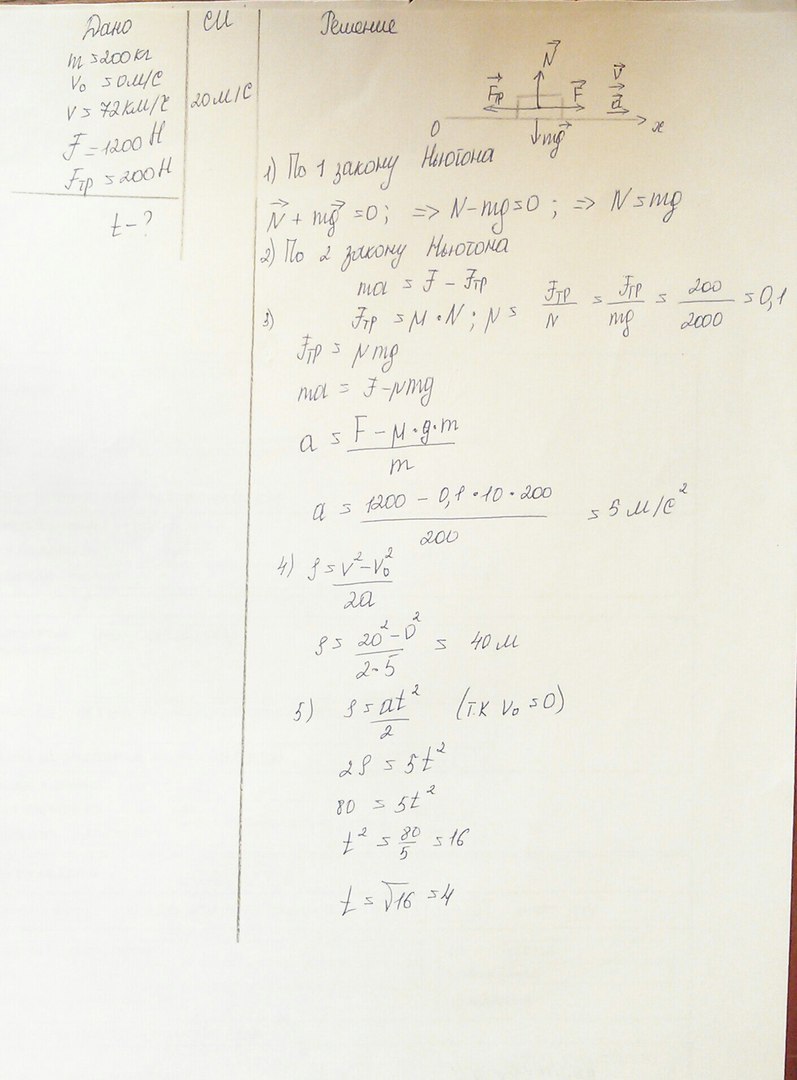 Дано
СИ
Решение
m = 200 кг
V₀ = 0 м/с
V = 72 км/ч
20 м/с
F = 1200 Н
Fтр = 200 Н
t - ?
N
Fтр
F
V
a
0
mg
x
1) По 1 закону Ньютона
N + mg = 0; => N - mg = 0; => N = mg
2) По 2 закону Ньютона
ma = F - Fтр
3) Fтр = μ · N; μ = Fтр/N = Fтр/mg = 200/2000 = 0,1
Fтр = μmg
ma = F - μmg
a = (F - μ · g · m)/m
a = (1200 - 0,1 · 10 · 200)/200 = 5 м/с²
4) S = (V² - V₀²)/2a
S = (20² - 0²)/(2 · 5) = 40 м
5) S = at²/2 (т.к V₀ = 0)
2S = 5t²
80 = 5t²
t² = 80/5 = 16
t = √16 = 4